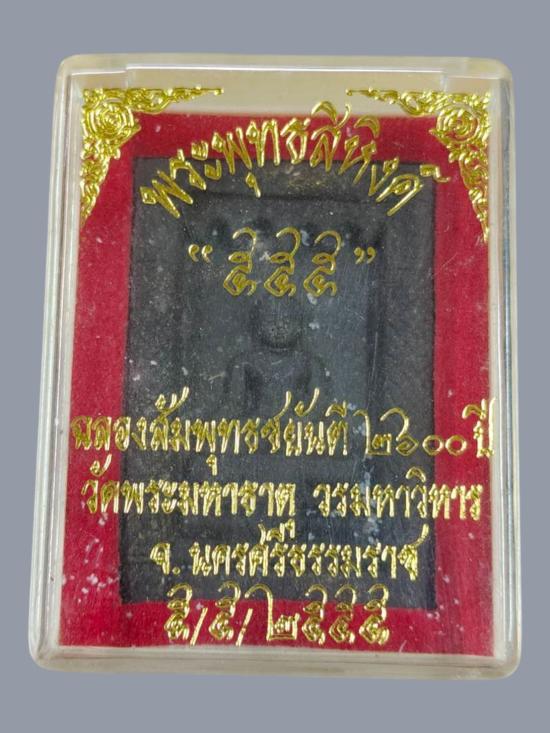 พระพุทธสิหิงค์
“๕๕๕”
ฉลองสัมพุทธชยันตี ๒๖๐๐ ปี
วัดพระมหาธาตุ วรมหาวิหาร
จ. นครศรีธรรมราช
๕/๕/๒๕๕๕